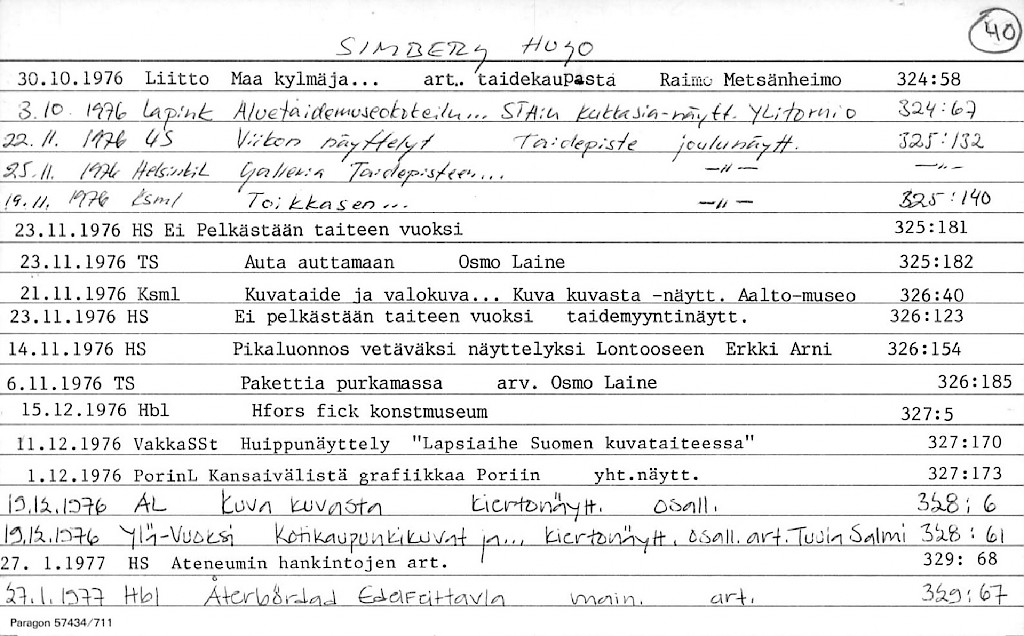 40
SIMBERG Hugo
30.10.1976 Liitto Maa kylmäja... art. taidekaupasta Raimo Metsänheimo 324:58
3.10. 1976 Lapink Aluetaidemuseokokeilu... STA:n kukkasia-näytt. YLitornio 324:67
22.11. 1976 US Viikon näyttelyt Taidepiste joulunäytt. 325:132
25.11. 1976 Helsinkil Galleria Taidepisteen... —"— —"—
19.11. 1976 Ksml Toikkasen... —"— 325:140
23.11.1976 HS Ei Pelkästään taiteen vuoksi 325:181
23.11.1976 TS Auta auttamaan Osmo Laine 325:182
21.11.1976 Ksml Kuvataide ja valokuva... Kuva kuvasta -näytt. Aalto-museo 326:40
23.11.1976 HS Ei pelkästään taiteen vuoksi taidemyyntinäytt. 326:123
14.11.1976 HS Pikaluonnos vetäväksi näyttelyksi Lontooseen Erkki Arni 326:154
6.11.1976 TS Pakettia purkamassa arv. Osmo Laine 326:185
15.12.1976 Hbl Hfors fick konstmuseum 327:5
11.12.1976 VakkaSSt Huippunäyttely "Lapsiaihe Suomen kuvataiteessa" 327:170
1.12.1976 PorinL Kansaivälistä grafiikkaa Poriin yht.näytt. 327:173
19.12.1976 AL Kuva kuvasta kiertonäytt. osall. 328:6
19.12.1976 Ylä-Vuoksi Kotikaupunkikuvat ja... kiertonäytt. osall. art. Tuula Salmi 328:61
27. 1.1977 HS Ateneumin hankintojen art. 329: 68
27.1.1977 Hbl Återbördad Edelfelttavla main. art. 329:67
Paragon 57434/711